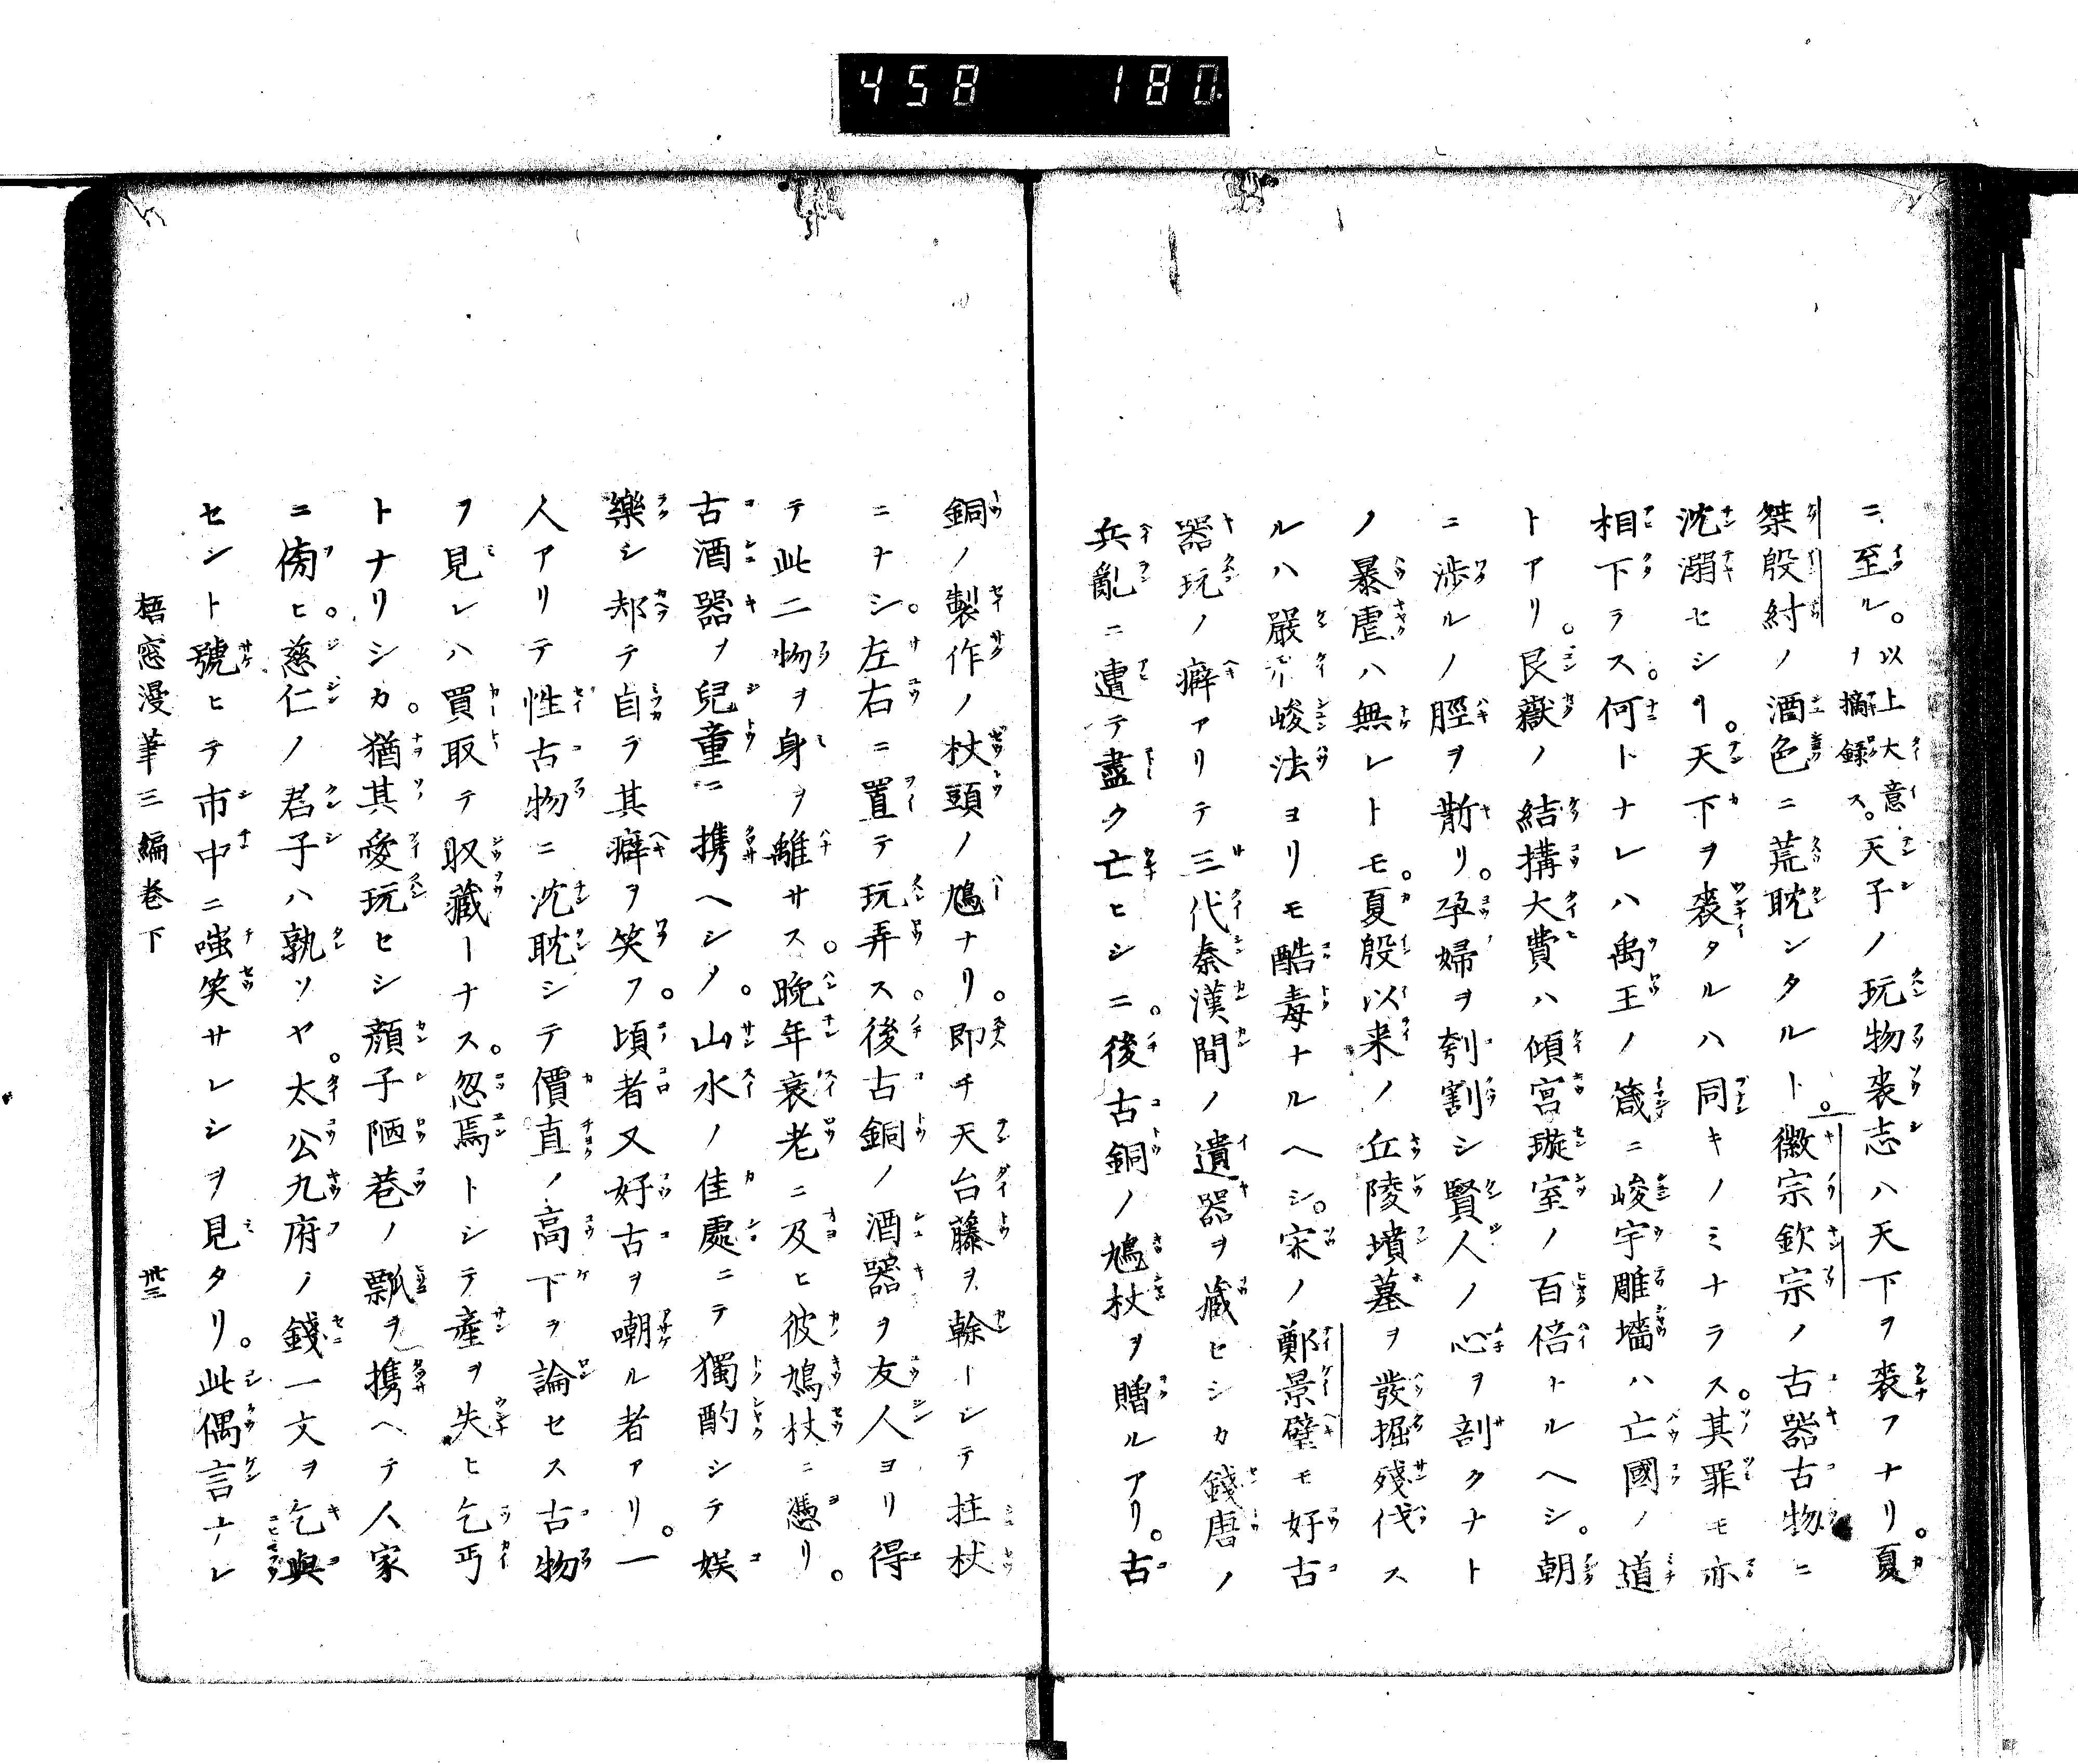 458 180
ニ至ル。以上大意ヲ摘録ス。天子ノ玩物喪志ハ天下ヲ喪フナリ。夏
桀殷紂ノ酒色ニ荒耽シタルト。徽宗欽宗ノ古器古物ニ
沈溺セシヿ。天下ヲ喪タルハ同キノミナラス。其罪モ亦
相下ラス。何トナレハ禹王ノ箴ニ峻宇雕墻ハ亡國ノ道
トアリ。艮嶽ノ結搆大費ハ傾宮璇室ノ百倍ナルヘシ。朝
ニ渉ルノ脛ヲ斮リ。孕婦ヲ刳割シ賢人ノ心ヲ剖クナト
ノ暴虐ハ無レトモ。夏殷以来ノ丘陵墳墓ヲ發掘殘伐ス
ルハ嚴刑峻法ヨリモ酷毒ナルヘシ。宋ノ鄭景璧モ好古
器玩ノ癖アリテ三代秦漢間ノ遺器ヲ藏ヒシカ錢唐ノ
兵亂ニ遭テ盡ク亡ヒシニ。後古銅ノ鳩杖ヲ贈ルアリ。古
銅ノ製作ノ杖頭ノ鳩ナリ。即チ天台藤ヲ榦ーシテ拄杖
ニナシ。左右ニ置テ玩弄ス。後古銅ノ酒器ヲ友人ヨリ得
テ此二物ヲ身ヲ離サス。晩年衰老ニ及ヒ彼鳩杖ニ憑リ。
古酒器ヲ兒童ニ携ヘシメ。山水ノ佳處ニテ獨酌シテ娯
樂シ却テ自ラ其癖ヲ笑フ。頃者又好古ヲ嘲ル者アリ。一
人アリテ性古物ニ沈耽シテ價直ノ高下ヲ論セス古物
ヲ見レハ買取テ収藏ーナス。忽焉トシテ産ヲ失ヒ乞丐
トナリシカ。猶其愛玩セシ顔子陋巷ノ瓢ヲ携ヘテ人家
ニ傍ヒ。慈仁ノ君子ハ孰ソヤ。太公九府ノ錢一文ヲ乞與
セント號ヒテ市中ニ嗤笑サレシヲ見タリ。此偶言ナレ
梧窓漫筆三編巻下 卅三